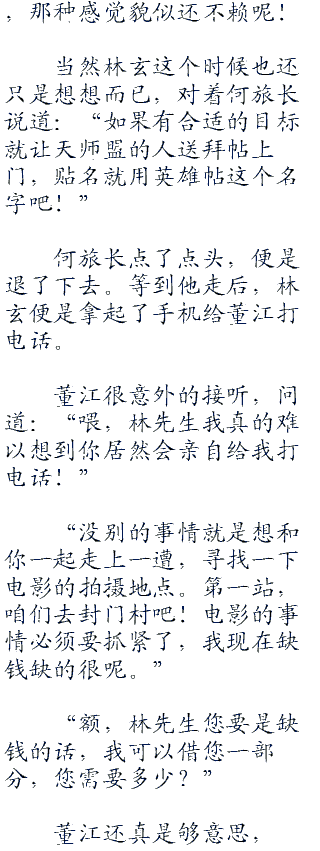 ，那种感觉貌似还不赖呢！
当然林玄这个时候也还
只是想想而已，对着何旅长
说道：“如果有合适的目标
就让天师盟的人送拜帖上
门，贴名就用英雄帖这个名
字吧！”
何旅长点了点头，便是
退了下去。等到他走后，林
玄便是拿起了手机给董江打
电话。
董江很意外的接听，问
道：“喂，林先生我真的难
以想到你居然会亲自给我打
电话！”
“没别的事情就是想和
你一起走上一遭，寻找一下
电影的拍摄地点。第一站，
咱们去封门村吧！电影的事
情必须要抓紧了，我现在缺
钱缺的很呢。”
“额，林先生您要是缺
钱的话，我可以借您一部
分，您需要多少？”
董江还真是够意思，